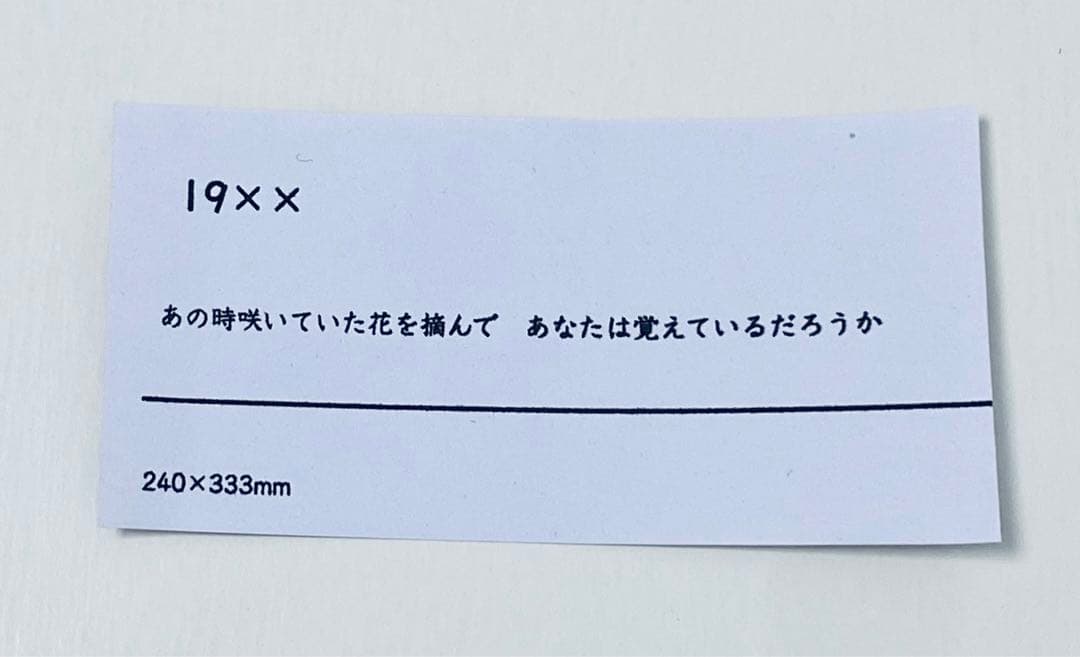 19××
あの時咲いていた花を摘んで　あなたは覚えているだろうか
240×333mm